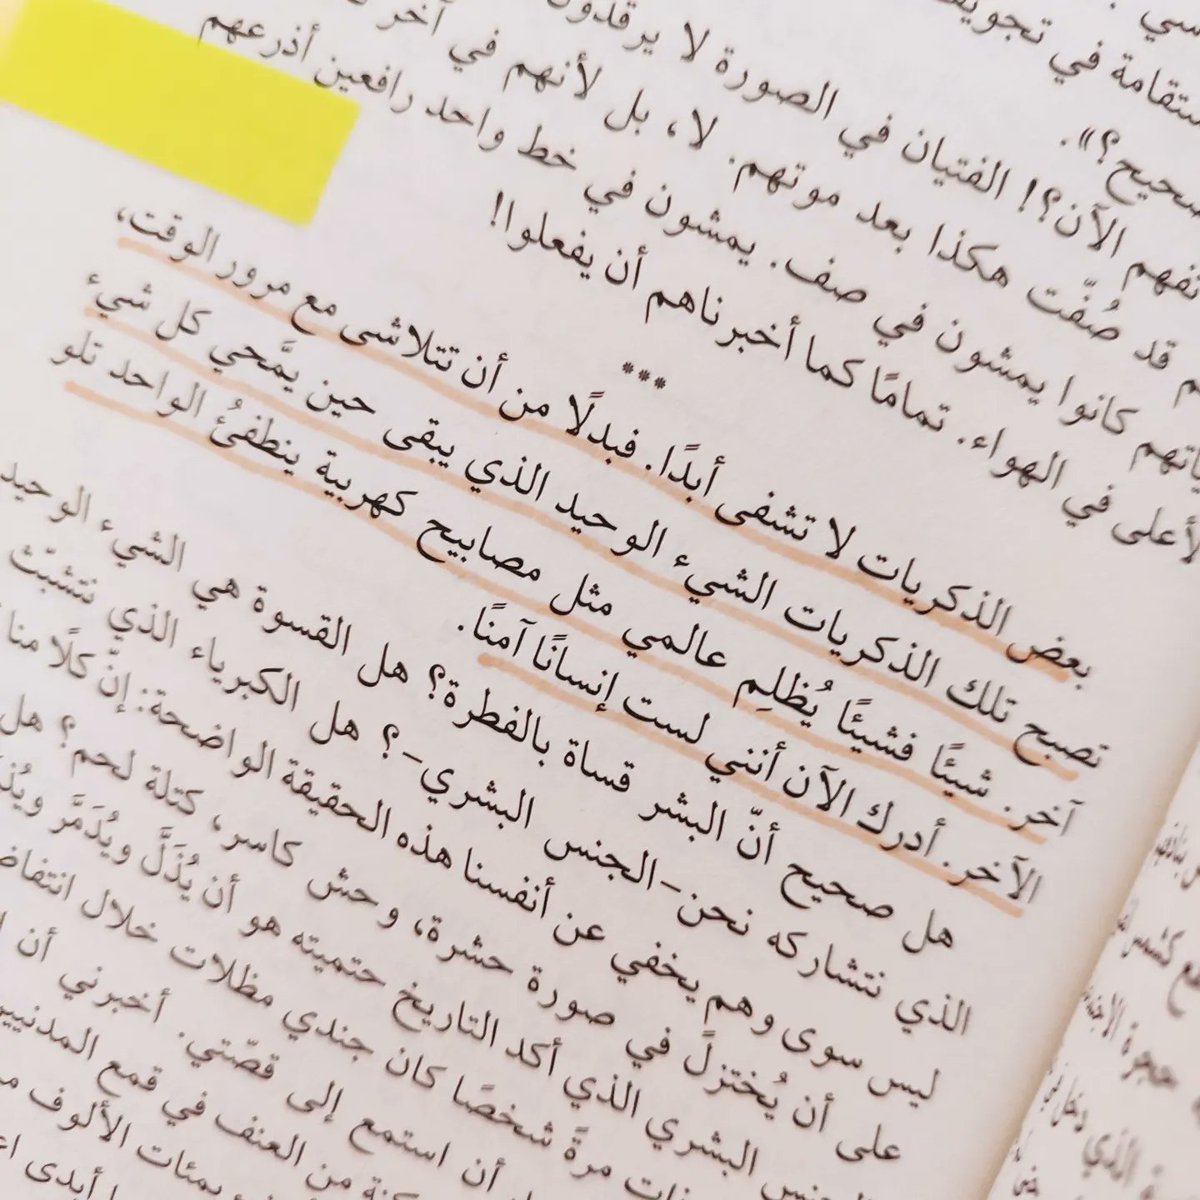 سي
ستقامة في تجويف
صحيح؟)).
نفهم الآن؟! الفتيان في الصورة لا يرقدون
م قد صُفّت هكذا بعد موتهم. لا، بل لأنهم في آخر
ياتهم كانوا يمشون في صف. يمشون في خط واحد رافعين أذرعهم
لأعلى في الهواء. تمامًا كما أخبرناهم أن يفعلوا!
***
بعض الذكريات لا تشفى أبدًا. فبدلًا من أن تتلاشى مع مرور الوقت،
تصبح تلك الذكريات الشيء الوحيد الذي يبقى حين يمَّحي كل شيء
آخر. شيئًا فشيئًا يُظلِم عالمي مثل مصابيح كهربية ينطفئُ الواحد تلو
الآخر. أدرك الآن أنني لست إنسانًا آمنًا.
هل صحيح أنّ البشر قساة بالفطرة؟ هل القسوة هي الشيء الوحيد
الذي نتشاركه نحن-الجنس البشري-؟ هل الكبرياء الذي نتشبّث
ليس سوى وهم يخفي عن أنفسنا هذه الحقيقة الواضحة: إنّ كلًا منا
على أن يُختزلَ في صورة حشرة، وحش كاسر، كتلة لحم؟ هل
الجنس البشري الذي أكد التاريخ حتميته هو أن يُذَلَّ ويُدَمَّر
مرةً شخصًا كان جندي مظلات خلال
أن استمع إلى قصّتي. أخبرني أن
من العنف في قمع المدنيين
بمئات الألوف
أبدى